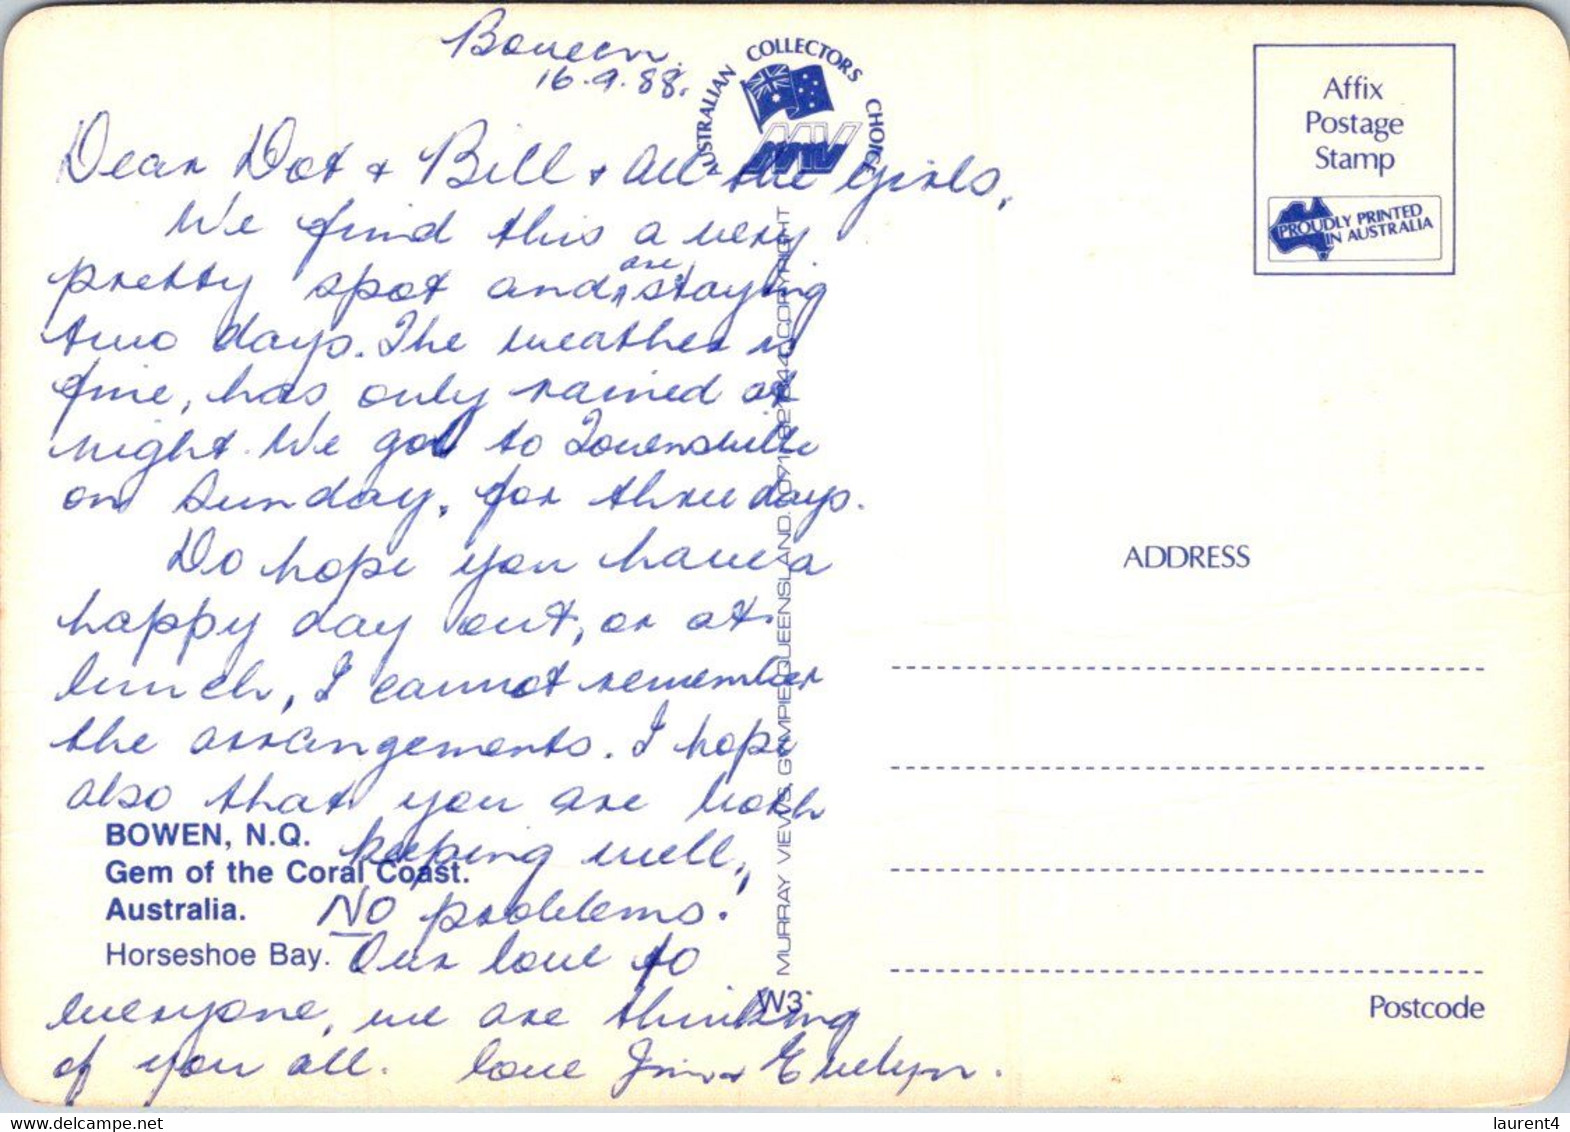 Bowen.
16.9.88.
AUSTRALIAN COLLECTORS CHOICE
MV
Dear Dot + Bill + all the girls,
We find this a very
pretty spot and are staying
two days. The weather is
fine, has only rained at
night. We go to Townsville
on Sunday, for three days.
Do hope you have a
happy day out, or at
lunch, I cannot remember
the arrangements. I hope
also that you are both
keeping well,
NO problems.
Our love to
everyone, we are thinking
of you all. love Jim + Evelyn.
BOWEN, N.Q.
Gem of the Coral Coast.
Australia.
Horseshoe Bay.
MURRAY VIEWS, GYMPIE, QUEENSLAND. COPYRIGHT
W3
Affix
Postage
Stamp
PROUDLY PRINTED
IN AUSTRALIA
ADDRESS
Postcode
laurent4